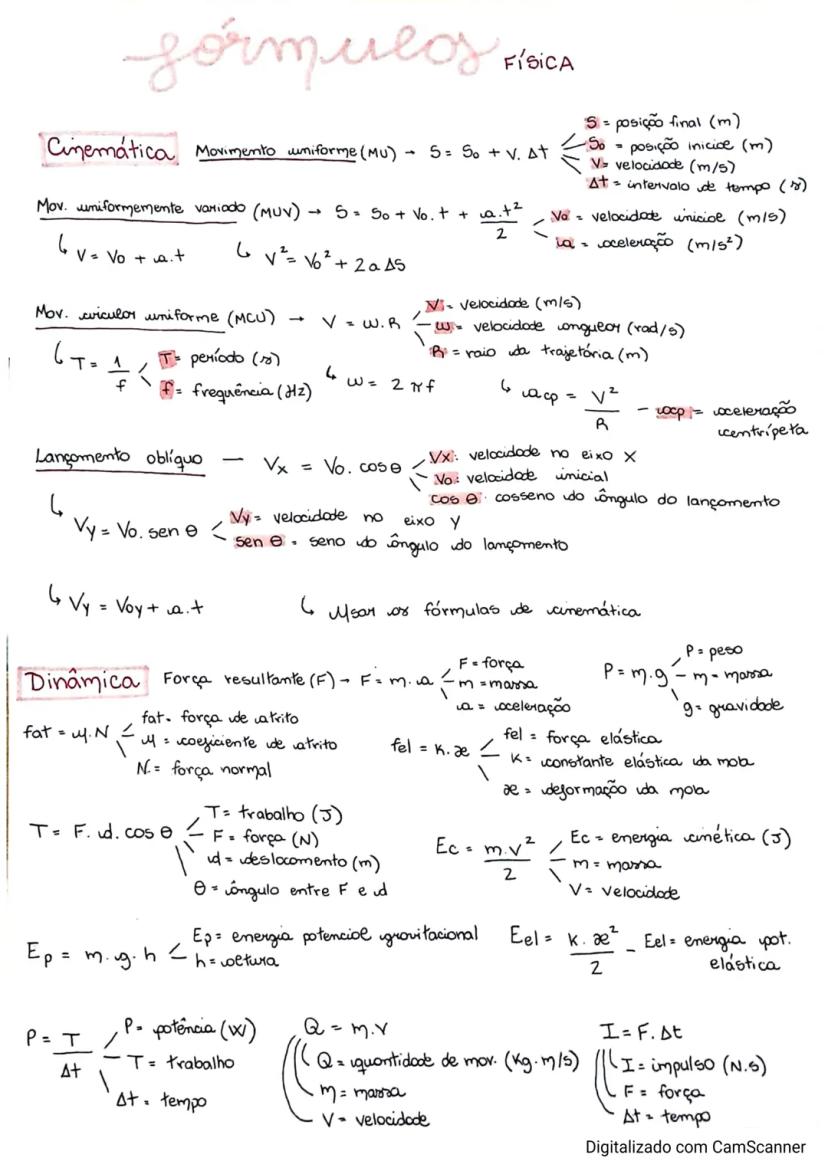 fórmulas FÍSICA
Cinemática Movimento uniforme (MU) → S = S₀ + V. Δt
S = posição final (m)
S₀ = posição inicial (m)
V = velocidade (m/s)
Δt = intervalo de tempo (s)
Mov. uniformemente variado (MUV) → S = S₀ + V₀. t + a.t²/2
V₀ = velocidade inicial (m/s)
a = aceleração (m/s²)
↳ V = V₀ + a.t ↳ V² = V₀² + 2aΔS
Mov. circular uniforme (MCU) → V = ω.R
V = velocidade (m/s)
ω = velocidade angular (rad/s)
R = raio da trajetória (m)
↳ T = 1/f
T = período (s)
f = frequência (Hz)
↳ ω = 2πf
↳ acp = V²/R - acp = aceleração
centrípeta
Lançamento oblíquo — Vx = V₀. cos θ
Vx: velocidade no eixo X
V₀: velocidade inicial
cos θ: cosseno do ângulo do lançamento
↳ Vy = V₀. sen θ
Vy = velocidade no eixo y
sen θ = seno do ângulo do lançamento
↳ Vy = V₀y + a.t ↳ Usar as fórmulas de cinemática
Dinâmica Força resultante (F) → F = m. a
F = força
m = massa
a = aceleração
P = m.g
P = peso
m = massa
g = gravidade
fat = μ.N
fat = força de atrito
μ = coeficiente de atrito
N = força normal
fel = K.x
fel = força elástica
K = constante elástica da mola
x = deformação da mola
T = F. d. cos θ
T = trabalho (J)
F = força (N)
d = deslocamento (m)
θ = ângulo entre F e d
Ec = m.v²/2
Ec = energia cinética (J)
m = massa
V = velocidade
Ep = m.g.h
Ep = energia potencial gravitacional
h = altura
Eel = K.x²/2 - Eel = energia pot.
elástica
P = T/Δt
P = potência (W)
T = trabalho
Δt = tempo
Q = m.v
Q = quantidade de mov. (Kg.m/s)
m = massa
V = velocidade
I = F. Δt
I = impulso (N.s)
F = força
Δt = tempo
Digitalizado com CamScanner